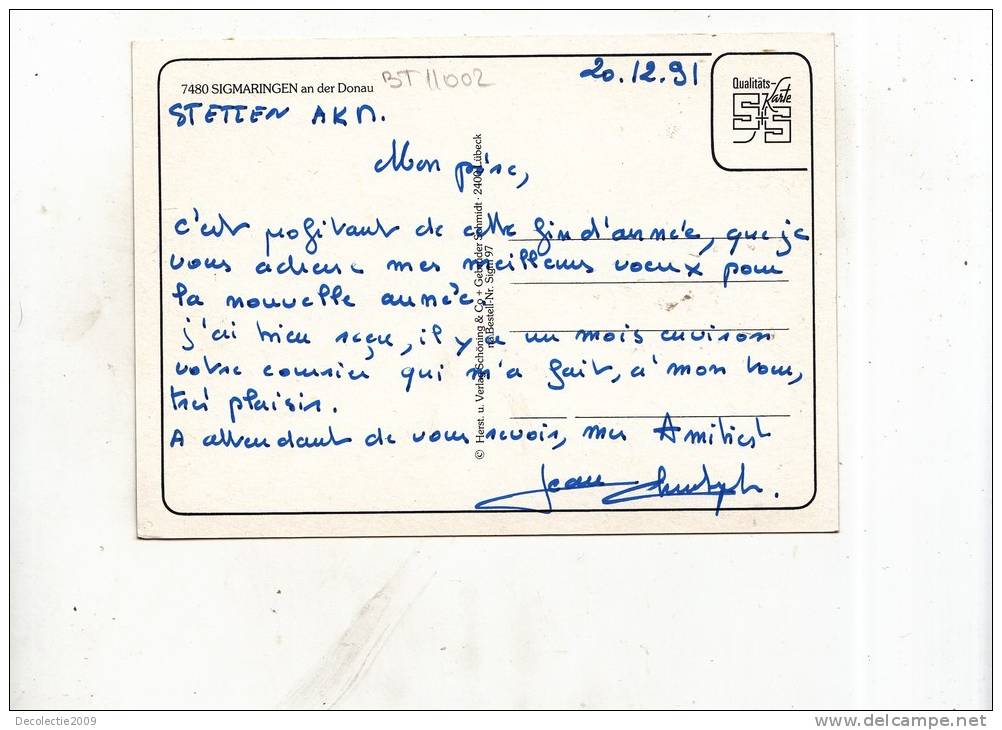 7480 SIGMARINGEN an der Donau
BT 11002
20.12.91
Qualitäts-
Karte
S+S
STETTEN AKM.
Mon père,
c'est profitant de cette fin d'année, que je
vous adresse mes meilleurs voeux pour
la nouvelle année.
j'ai bien reçu, il y a un mois environ
votre courrier qui m'a fait, à mon tour,
très plaisir.
A attendant de vous revoir, mes Amitiés
Jean Christophe.
© Herst. u. Verlag Schöning & Co + Gebrüder Schmidt · 2400 Lübeck
Bestell-Nr. Sigm 97
Decolectie2009
www.delcampe.net